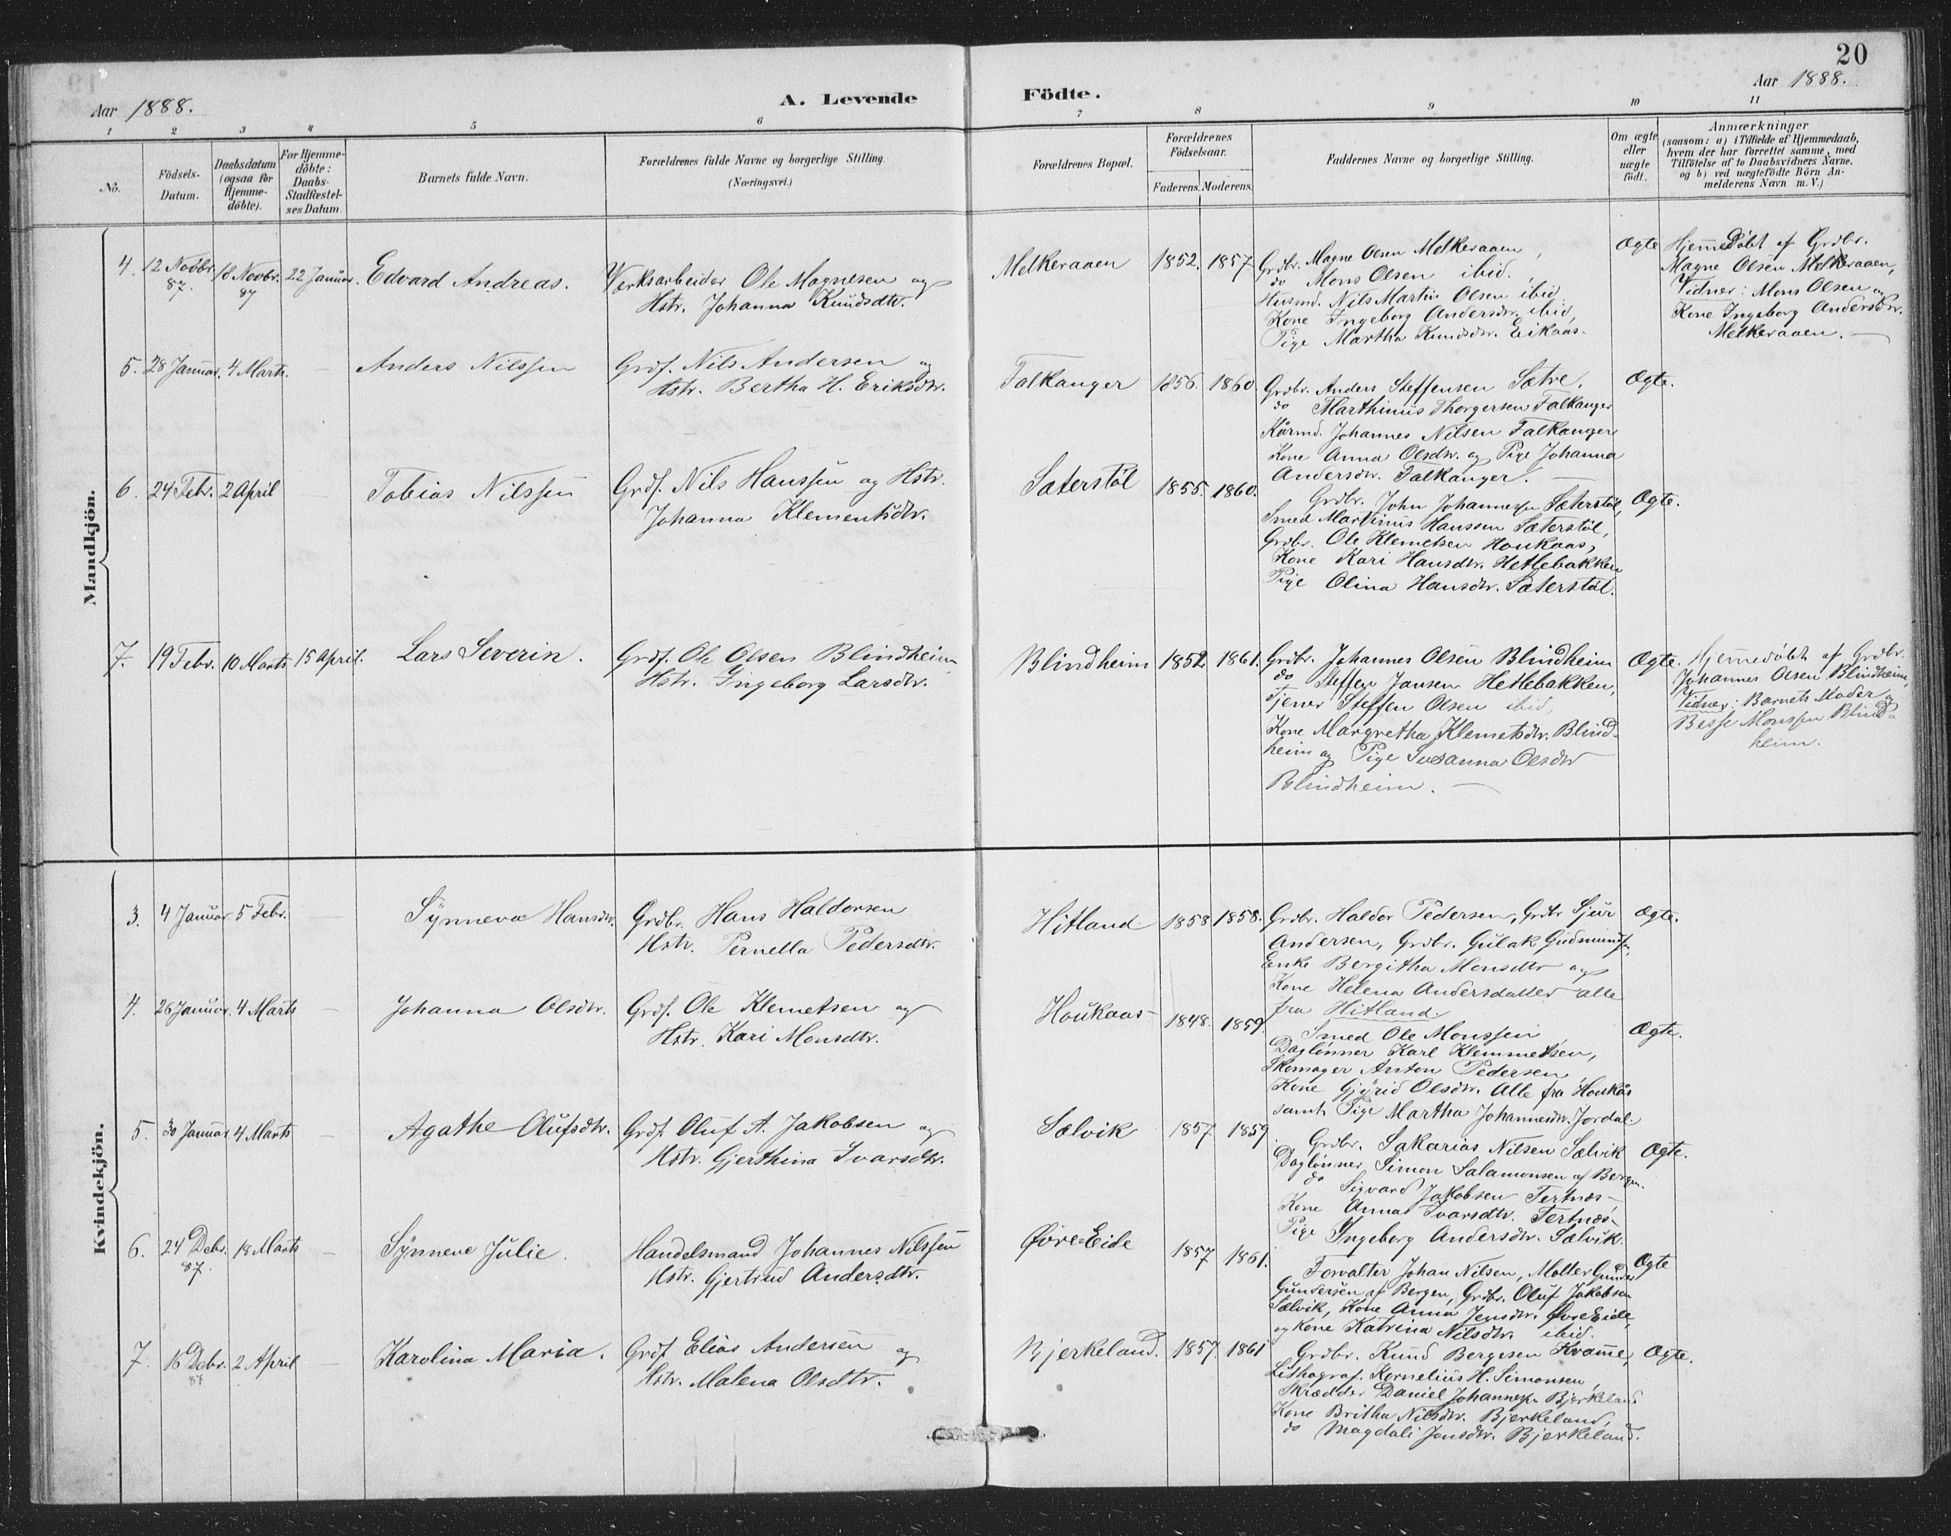 20
Aar 1888.
A. Levende Födte.
Aar 1888.
1 2 3 4 5 6 7 8 9 10 11
No.
Födsels-Datum.
Daabsdatum (ogsaa for Hjemme-döbte).
For Hjemme-döbte: Daabs-Stadfæstel-ses Datum.
Barnets fulde Navn.
Forældrenes fulde Navne og borgerlige Stilling.
(Næringsvei.)
Forældrenes Bopæl.
Forældrenes Födselsaar.
Faderens. Moderens.
Faddernes Navne og borgerlige Stilling.
Om ægte eller uægte födt.
Anmærkninger
(saasom: a) i Tilfælde af Hjemmedaab,
hvem der har forrettet samme, med
Tilföielse af to Daabsvidners Navne.
og b) ved uægtefödte Börn An-
melderens Navn m. V.)
Mandkjön.
4. 12 Novbr. 87. 18 Novbr. 87 22 Januar. Edvard Andreas.
Værksarbeider Ole Magnesen og
Hstr. Johanna Knudsdtr.
Melkeraaen 1852. 1857
Grdbr. Magne Olsen Melkeraaen,
do Mons Olsen ibid.,
Husmd. Nils Martin Olsen ibid,
Kone Ingeborg Andersdtr. ibid,
Pige Martha Knudsdtr. Eikaas.
Ægte
Hjemmedøbt af Grdbr.
Magne Olsen Melkeraaen,
Vidner: Mons Olsen og
Kone Ingeborg Andersdtr.
Melkeraaen. —
5. 28 Januar. 4 Marts. — Anders Nilssen
Grdf. Nils Andersen og
Hstr. Bertha H. Eriksdtr.
Falkanger 1856. 1860.
Grdbr. Anders Steffensen Sætre,
do Marthinus Thorgersen Falkanger
Kårmd. Johannes Nilsen Falkanger
Kone Anna Olsdtr. og Pige Johanna
Andersdtr. Falkanger. —
Ægte.
6. 24 Febr. 2 April Tobias Nilssen
Grdf. Nils Hanssen og Hstr.
Johanna Klementsdtr.
Sæterstøl 1855. 1860.
Grdbr. John Johannessen Sæterstøl,
Smed Martinus Hanssen Sæterstøl,
Grdbr. Ole Klemetsen Houkaas,
Kone Kari Hansdtr. Hetlebakken
Pige Olina Hansdtr. Sæterstøl.
Ægte.
7. 19 Febr. 10 Marts 15 April. Lars Severin.
Grdf. Ole Olsen Blindheim
Hstr. Ingeborg Larsdtr.
Blindheim 1852 1861.
Grdbr. Johannes Olsen Blindheim
do Steffen Jansen Hetlebakken,
Tjener Steffen Olsen ibid,
Kone Margretha Klemetsdtr. Blind-
heim og Pige Susanna Olsdtr
Blindheim. —
Ægte.
Hjemmedøbt af Grdbr.
Johannes Olsen Blindheim,
Vidner: Barnets Moder og
Monssen Blind-
heim.
Kvindekjön.
3. 4 Januar 5 Febr. — Synneva Hansdtr.
Grdbr. Hans Haldorsen
Hstr. Pernella Pedersdtr.
Hitland 1858 1858.
Grdbr. Haldor Pedersen, Grdbr Sjur
Andersen, Grdbr. Gulak Gudmunds.
Enke Bergitha Monsdtr og
Kone Helena Andersdatter alle
fra Hitland.
Ægte.
4. 26 Januar. 4 Marts — Johanna Olsdtr.
Grdf. Ole Klemetsen og
Hstr. Kari Monsdtr.
Houkaas 1848. 1859.
Smed Ole Monssen,
Dagløнner Karl Klemmetsen,
Skomager Anton Pedersen
Kone Gjyrid Olsdtr. Alle fra Houkås
samt Pige Martha Johannesdtr. Jordal.
Ægte.
5. 30 Januar 4 Marts — Agathe Olufsdtr.
Grdf. Oluf A. Jakobsen og
Hstr. Gjerthina Ivarsdtr.
Sælvik 1857 1859
Grdbr. Sakarias Nilsen Sælvik
Dagløнner Simon Salamonsen af Bergen.
do Sigvard Jakobsen Tertnæs
Kone Anna Ivarsdtr. Tertnæs
Pige Ingeborg Andersdtr. Sælvik.
Ægte.
6. 24 Debr. 87. 18 Marts — Synneve Julie.
Handelsmand Johannes Nilssen
Hstr. Gjertrud Andersdtr.
Øvre-Eide 1857 1861.
Forvalter Johan Nilsen,
Gundersen af Bergen, Grdbr. Oluf Jakobsen
Sælvik, Kone Anna Jensdtr. Øvre Eide,
og Kone Katrina Nilsdtr. ibid.
Ægte
7. 16 Debr. 87 2 April — Karolina Maria.
Grdf. Elias Andersen og
Hstr. Malena Olsdtr.
Bjerkeland. 1857. 1861
Grdbr. Knud Bergesen Kvamme,
Lithograf. Kornelius H. Simonsen,
Skrædder Daniel Johannessen Bjerkeland
Kone Britha Nilsdtr. Bjerkeland,
do Magdali Jonsdtr. Bjerkeland.
Ægte.